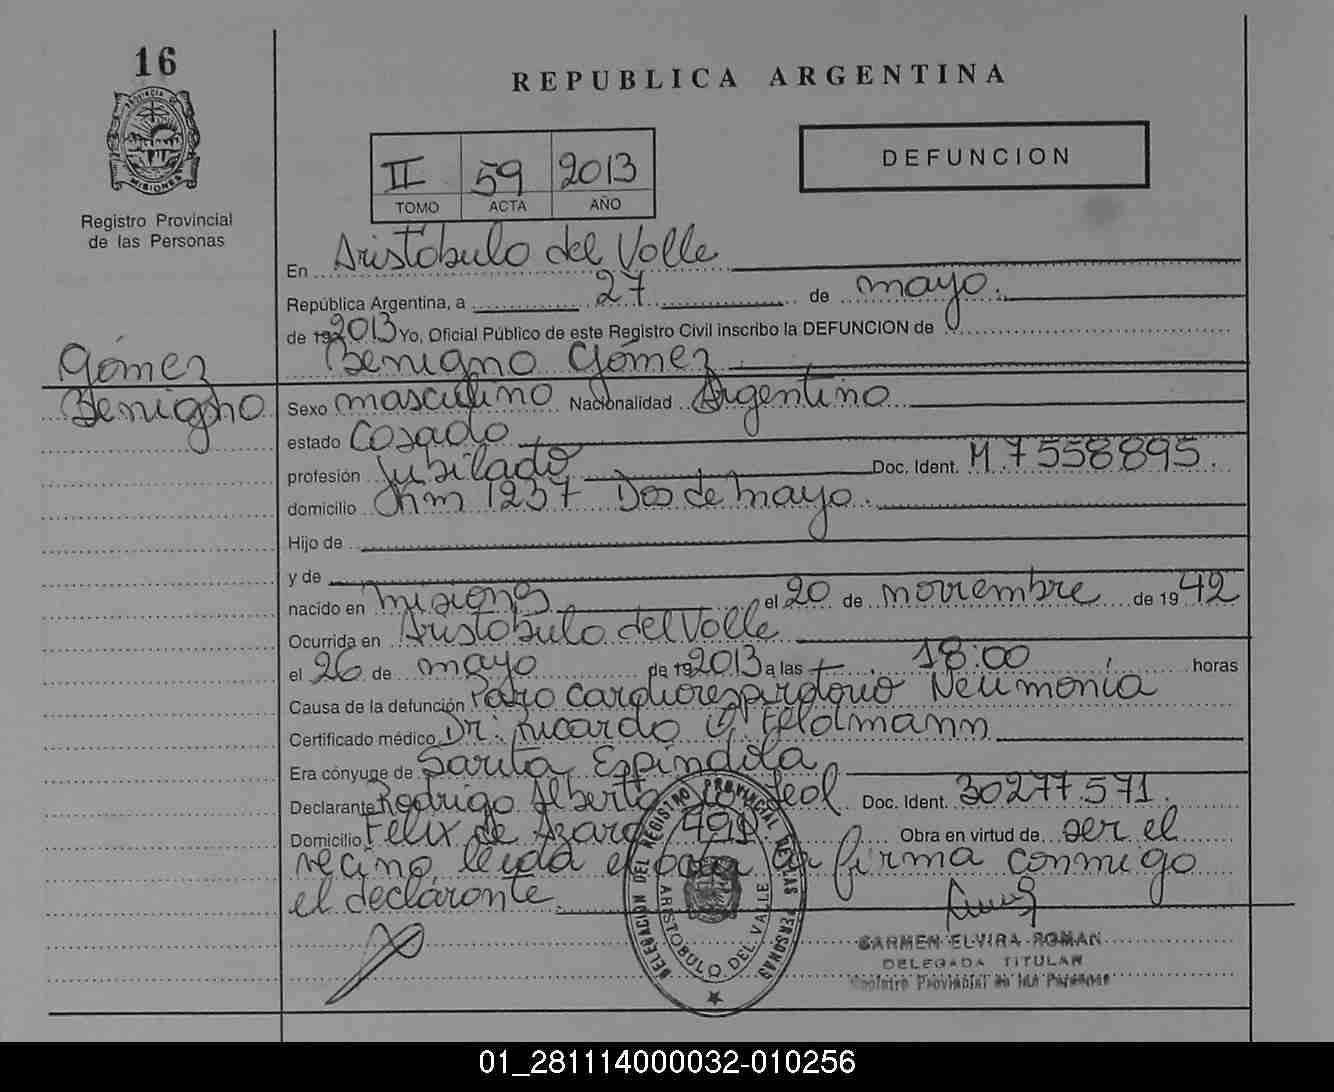 16
PROVINCIA DE
MISIONES
Registro Provincial
de las Personas
REPUBLICA ARGENTINA
DEFUNCION
II 59 2013
TOMO ACTA AÑO
En Aristobulo del Valle
República Argentina, a 27 de mayo.
de 192013 Yo, Oficial Público de este Registro Civil inscribo la DEFUNCION de
Gómez
Benigno Gómez
Benigno
Sexo masculino Nacionalidad Argentino
estado Casado
profesión Jubilado Doc. Ident. M 7558895.
domicilio Km 1237 Dos de mayo.
Hijo de
y de
nacido en misiones el 20 de noviembre de 1942
Ocurrida en Aristobulo del Valle
el 26 de mayo de 192013 a las 18:00 horas
Causa de la defunción Paro cardiorespiratorio Neumonia
Certificado médico Dr: Ricardo Feldmann
Era cónyuge de Sarita Espindola
Declarante Rodrigo Alberto Leal Doc. Ident. 30277571.
Domicilio Felix de Azara Obra en virtud de ser el
vecino, leida el acta firma conmigo
el declarante.
DELEGACION DEL REGISTRO PROVINCIAL DE LAS PERSONAS
ARISTOBULO DEL VALLE
CARMEN ELVIRA ROMAN
DELEGADA TITULAR
Registro Provincial de las Personas
01_281114000032-010256